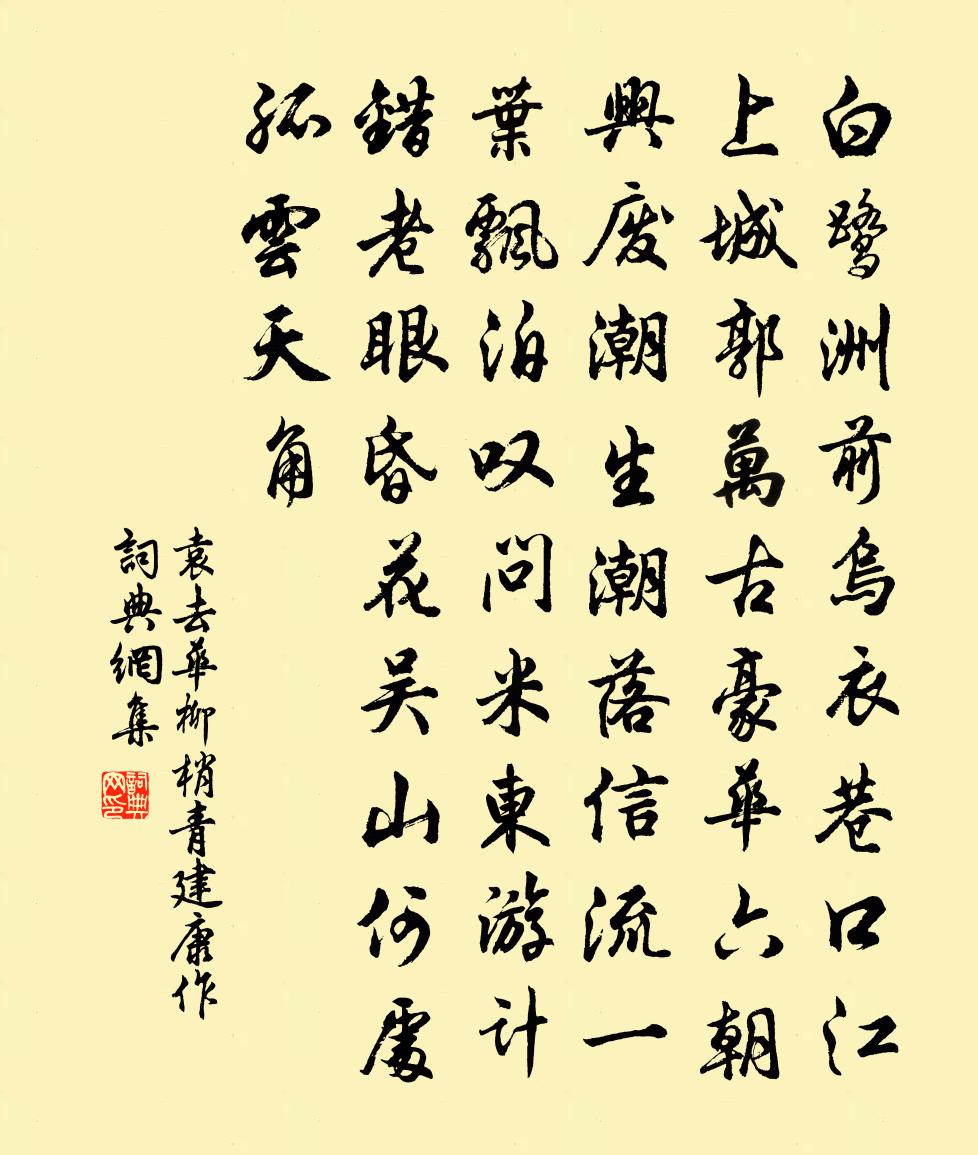 白鹭洲前烏衣巷口江
上城郭萬古豪華六朝
興废潮生潮落信流一
葉飄泊叹問米東游计
錯老眼昏花吴山何處
孤雲天角
袁去華柳梢青建康作
詞典網集
詞典网印